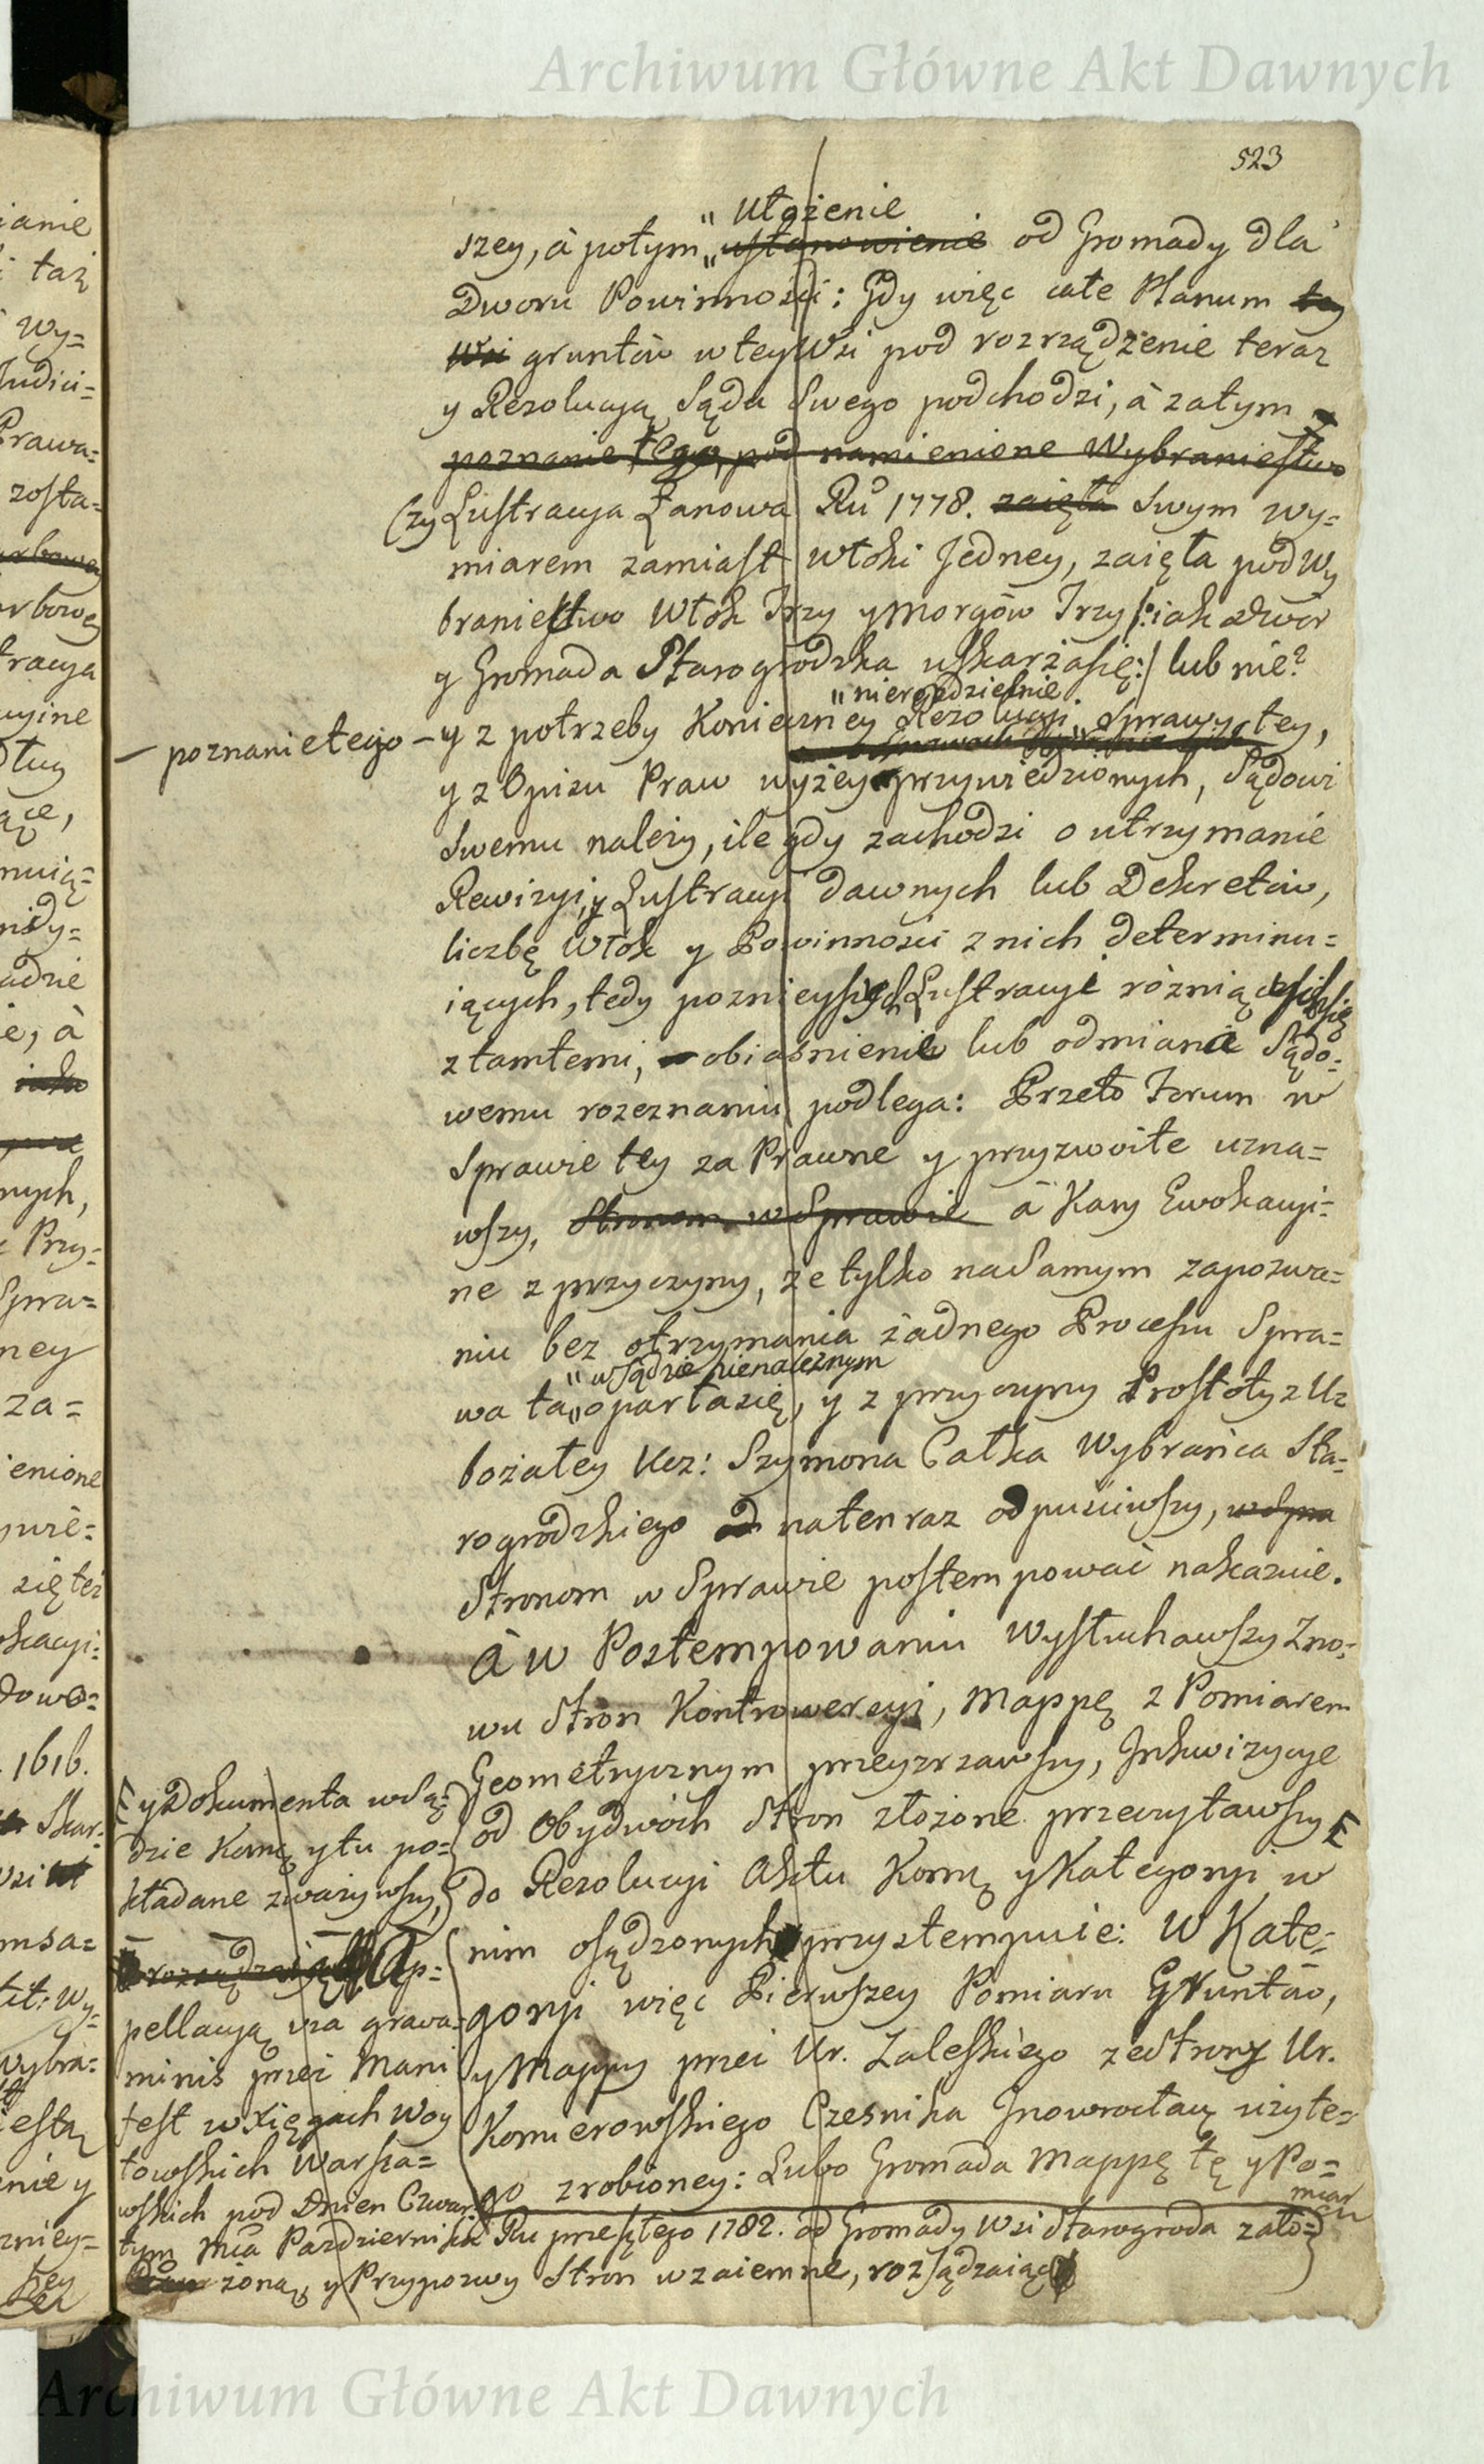 Archiwum Główne Akt Dawnych
523
" Ułożenie
szey, à potym „ ustanowienie od Gromady dla
Dworu Powinności: Gdy więc całe Planum tey
Wsi gruntów w tey Wsi pod rozrządzenie teraz
y Rezolucyą Sądu Swego podchodzi, à zatym
poznanie tego, pod namienione Wybraniestwo
Czy Lustracya Łanowa Ru 1778. zaięła Swym wy=
miarem zamiast włoki Jedney, zaięła pod Wy
braniestwo Włok Trzy y Morgów Trzy /: iak Dwór
y Gromada Starogrodzka uskarża się :/ lub nie?
" nierozdzielnie
– poznanie tego – y z potrzeby Konieczney Rezolucyi „ Sprawy tey,
y z Opisu Praw wyżey przywiedzionych, Sądowi
Swemu należy, ile gdy zachodzi o utrzymanie
Rewizyi, y Lustracyi dawnych lub Dekretów,
liczbę Włok y Powinności z nich determinu=
iących, tedy poznieyszych Lustracyi rożniących się
z tamtemi, obiasnienie lub odmiana Sądo=
wemu rozeznaniu podlega: Przeto Forum w
Sprawie tey za Prawne y przyzwoite uzna=
wszy, Stronom w Sprawie à Kary Ewokacyi=
ne z przyczyny, że tylko na Samym zapozwa=
niu bez otrzymania żadnego Processu Spra=
" w Sądzie nienależnym
wa ta „ oparta się, y z przyczyny Prostoty z U
bożałey Ucz: Szymona Całka Wybrańca Sta=
rogrodzkiego na ten raz odpuściwszy,
Stronom w Sprawie postempować nakazuie.
À w Postempowaniu Wysłuchawszy Zno=
wu Stron Kontrowersyi, Mappę z Pomiarem
Geometrycznym przeyzrzawszy, Inkwizycye
od Obydwóch Stron złożone przeczytawszy
do Rezolucyi Aktu Komę y Kategoryi w
nim osądzonych przystempuie: W Kate=
goryi więc Pierwszey Pomiaru Gruntów,
y Mappy przez Ur. Zaleskiego ze Strony Ur.
Komierowskiego Czesnika Inowrocław użyte=
go zrobioney: Lubo Gromada Mappę tę y Po=
miar
y Dokumenta w Są=
dzie Komę y tu po=
kładane zważywszy,
Ap=
pellacyą via grava=
minis przez Mani
fest w Xięgach Woy
towskich Warsza=
wskich pod Dniem Czwar
tym Mca Pazdziernika Ru przeszłego 1782. od Gromady Wsi Starogroda zało=
żoną, y Przypozwy Stron wzaiemne, rozsądzaiąc
ianie
wy=
Judici=
Prawa=
zosta=
tracya
nuią=
adzie
ie, à
nych,
Przy=
Spra=
ney
za=
ienione
się też
1616.
wybra=
zniey=
szey
Archiwum Główne Akt Dawnych